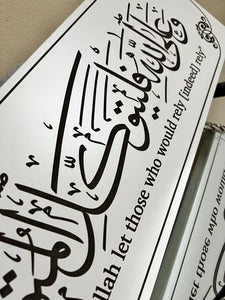 وعلى الله فليتوكل المتو
llah let those who would rely [indeed] rely"
those who would